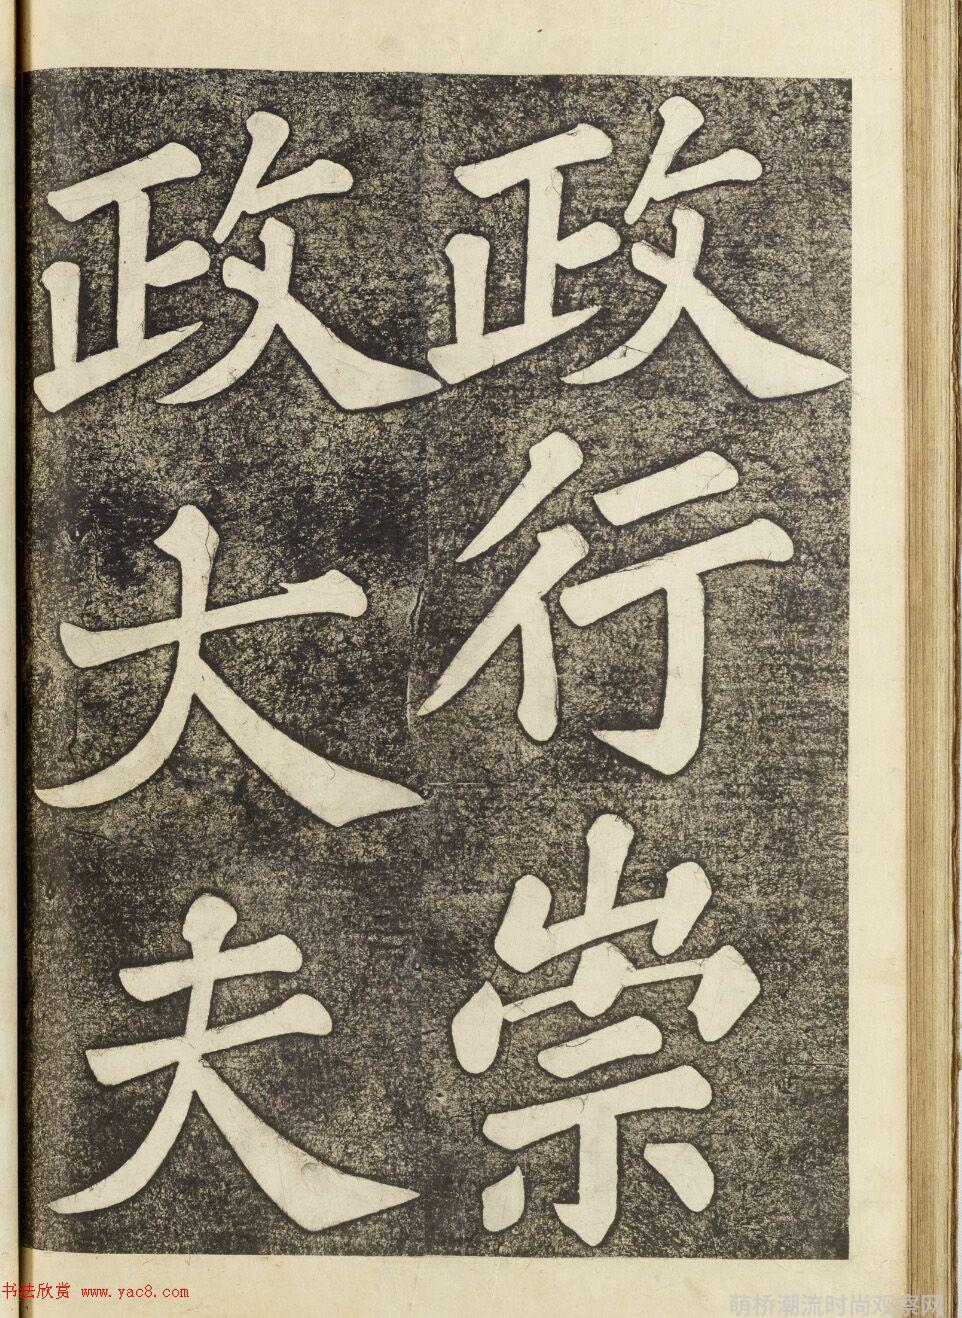 政行崇
政大夫
书法欣赏 www.yac8.com
萌桥潮流时尚观察网